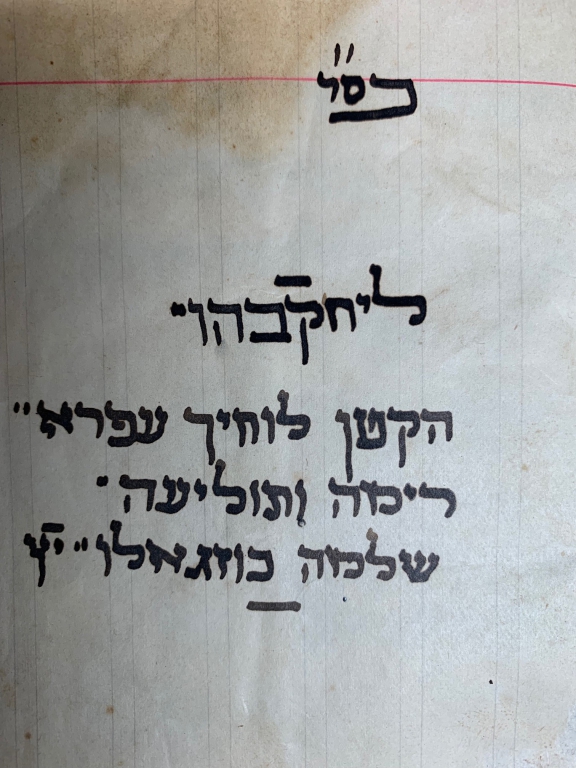 בסי״
ליחקבהו״
הקטן לוחיך עפרא״
רימה ותוליעה·
שלמה בוזגאלו״ יץ